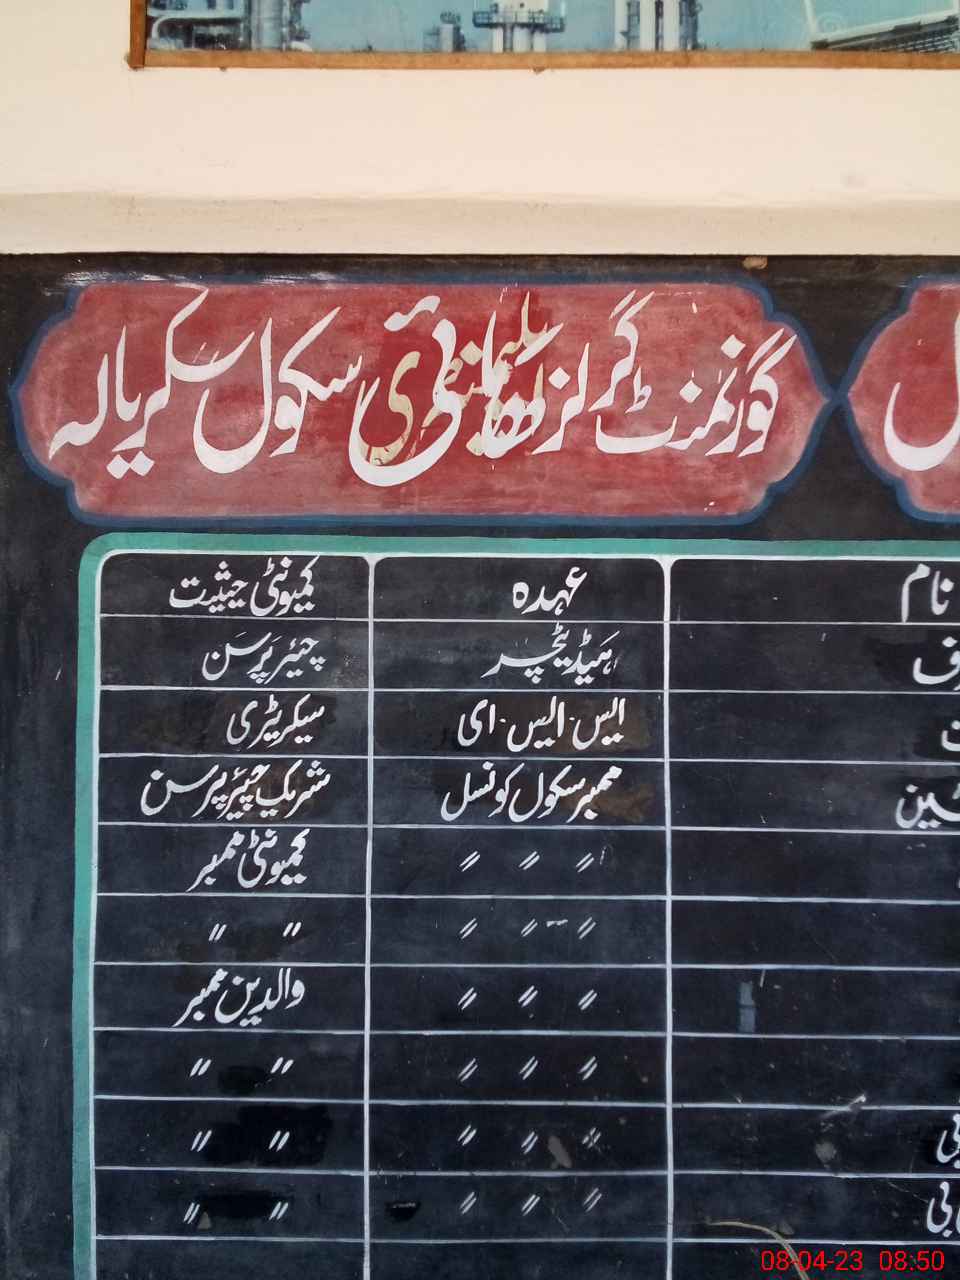 گورنمنٹ گرلز ہائی سکول سکریالہ
نام عہدہ کمیونٹی حیثیت
ہیڈ ٹیچر چیئرپرسن
ایس۔ایس۔ای سیکریٹری
ممبر سکول کونسل شریک چیئرپرسن
〃 〃 〃 کمیونٹی ممبر
〃 〃 〃 〃 〃
〃 〃 〃 والدین ممبر
〃 〃 〃 〃 〃
〃 〃 〃 〃 〃
〃 〃 〃 〃 〃
08-04-23 08:50